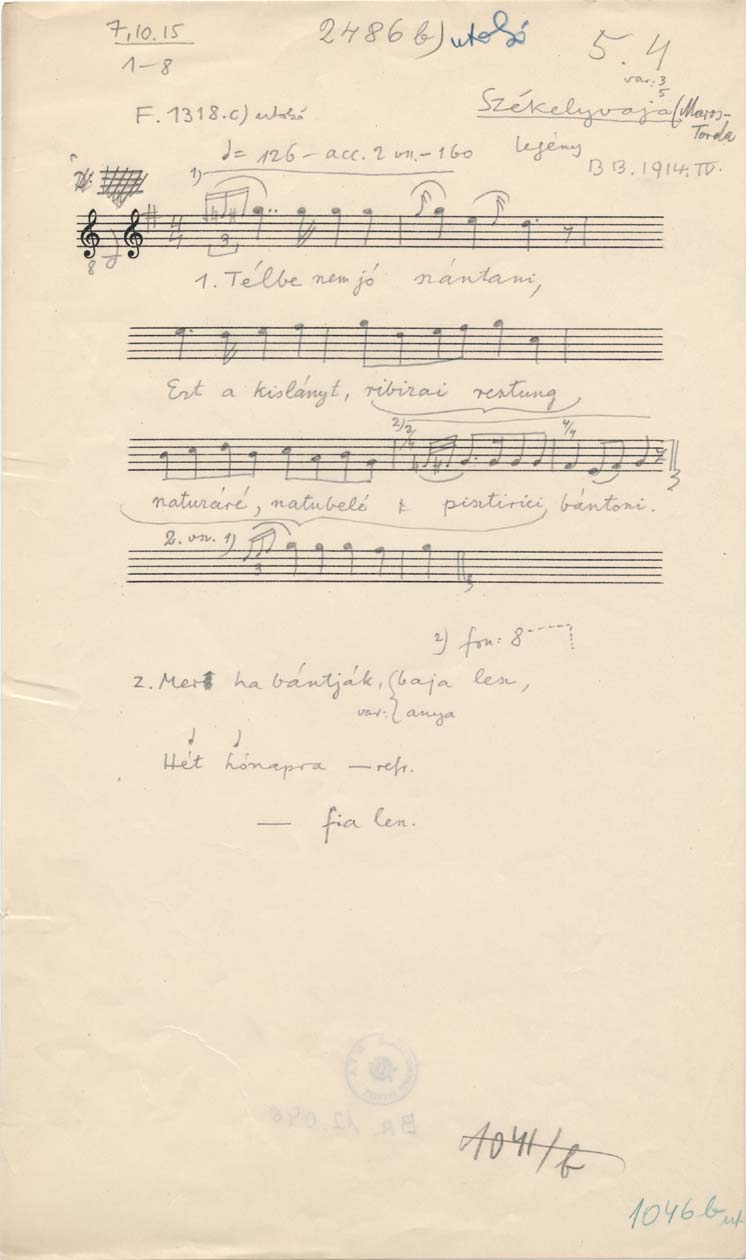 7,10.15
1-8
2486 b) utolsó
5. 4
var: 3
5
F. 1318.c) utolsó
Székelyvaja (Maros-
Torda
legény
B B. 1914. IV.
♩= 126 – acc. 2 vn. – 160
1)
3
8
1. Télbe nem jó szántani,
Ezt a kislányt, ribizai resztung
2) 2/4 4/4
naturáré, natubelé pisztirici bántoni.
2. vn. 1)
3
2) fon: 8
2. Mer ha bántják, baja len,
var: anya
Hét hónapra — refr.
— fia len.
Ba. 12.046
1041/b
1046 b ut